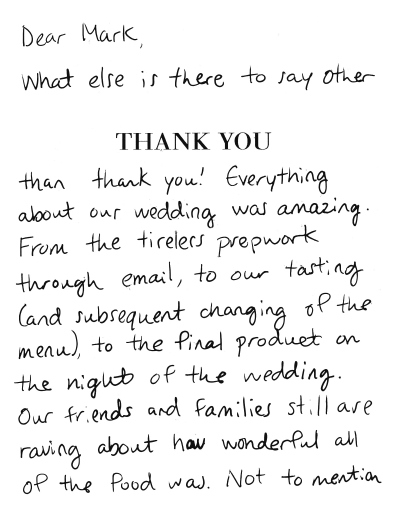 Dear Mark,
What else is there to say other
THANK YOU
than thank you! Everything
about our wedding was amazing.
From the tireless prepwork
through email, to our tasting
(and subsequent changing of the
menu), to the final product on
the night of the wedding.
Our friends and families still are
raving about how wonderful all
of the food was. Not to mention